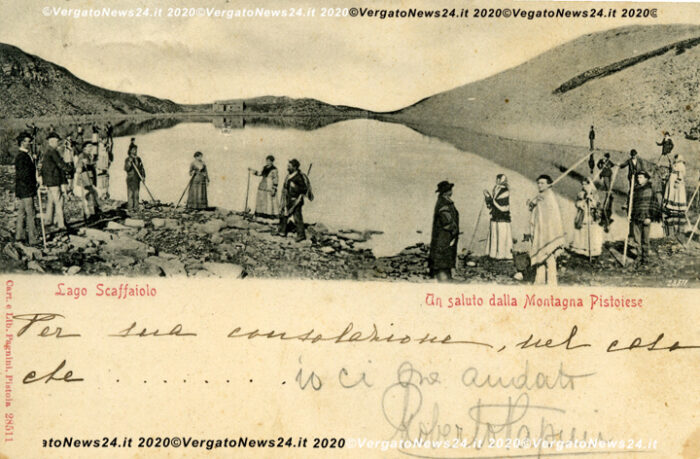 ©VergatoNews24.it 2020©VergatoNews24.it 2020©VergatoNews24.it 2020 ©VergatoNews24.it 2020©VegatoNews24.it 2020©
28511
Lago Scaffaiolo
Un saluto dalla Montagna Pistoiese
Cart. e Lib. Pagnini, Pistoia 28511
Per sua consolazione, nel caso
che .......... io ci ore andato
Roberto Papini
atoNews24.it 2020©VergatoNews24.it 2020©VergatoNews24.it 2020 ©VergatoNews24.it 2020©VergatoNews24.it 2020©